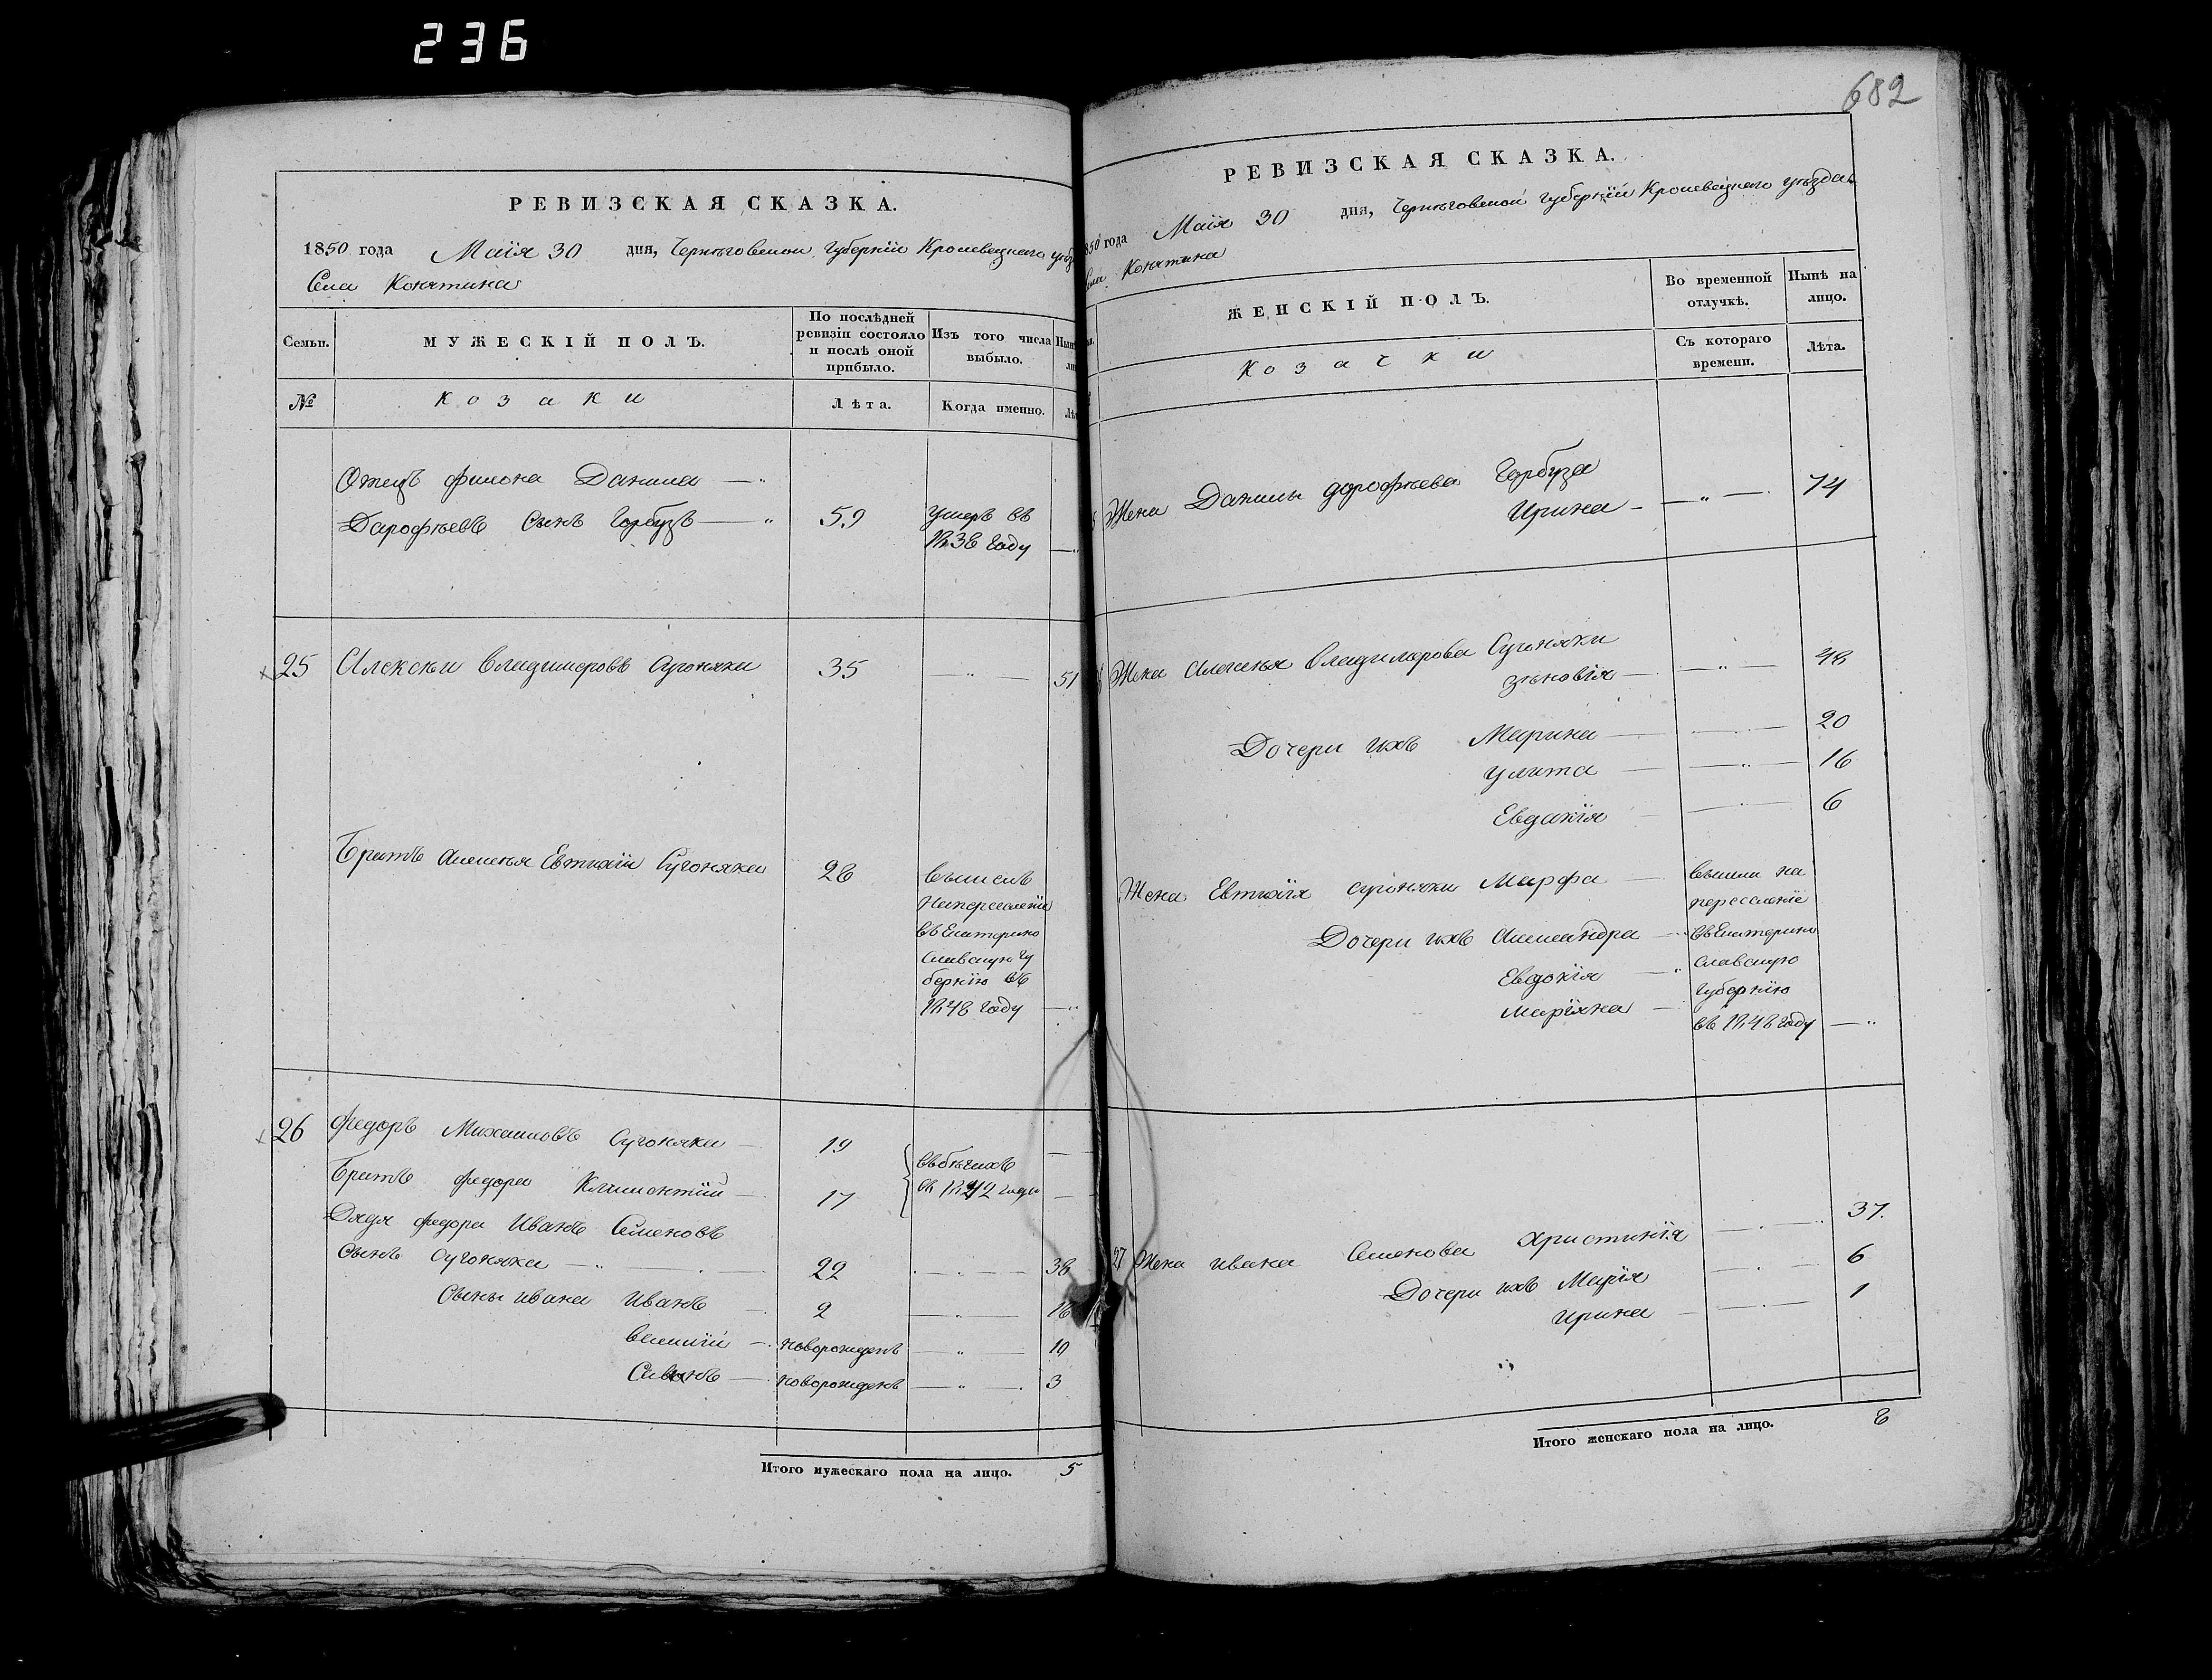 236
682
РЕВИЗСКАЯ СКАЗКА.
1850 года Маія 30 дня, Черниговской Губерніи Кролевецкаго
Села Конятина
Семьи. МУЖЕСКІЙ ПОЛЪ. По послѣдней ревизіи состояло и послѣ оной прибыло. Изъ того числа выбыло.
№ Козаки Лѣта. Когда именно.
Отецъ Филона Данила — „
Дарофѣевъ сынъ Горбузъ — „ 59 умеръ въ
1838 году — „
25 Алексѣй Владимеровъ Сугоняка 35 — „ — 51
Братъ Алексѣя Евтихій Сугоняка 28 вышелъ
на переселенія
въ Екатерино
славскую гу
бернію въ
1848 году — „
26 Федоръ Михайловъ Сугоняка — 19 въ бѣгахъ —
Братъ Федора Климентій — 17 въ 1842 году —
Дядя Федора Иванъ Семеновъ
сынъ Сугоняка — „ — 22 — „ — 38
Сыны Ивана Иванъ — 2 — „ — 18
Василій — новорожденъ — „ — 10
новорожденъ — „ — 3
Итого мужескаго пола на лицо. 5
РЕВИЗСКАЯ СКАЗКА.
1850 года Маія 30 дня, Черниговской Губерніи Кролевецкаго уѣзда
Села Конятина
ЖЕНСКІЙ ПОЛЪ. Во временной отлучкѣ. Нынѣ на лицо.
Козачки Съ котораго времени. Лѣта.
Жена Данилы Дорофѣева Горбуза
Ирина — — „ — 74
Жена Алексѣя Владимерова Сугоняки
Зѣновія — — „ — 48
Дочери ихъ Марина — — „ — 20
Улита — — „ — 16
Евдакія — „ — 6
Жена Евтихія Сугоняки Марфа — вышли на
переселеніе
Дочери ихъ Александра — въ Екатерино
Евдокія — „ славскую
губернію
Маріяна — въ 1848 году — „
27 Жена Ивана Семенова Христинія — „ — 37.
Дочери ихъ Марія — „ — 6
Ирина — „ — 1
„
Итого женскаго пола на лицо. 8